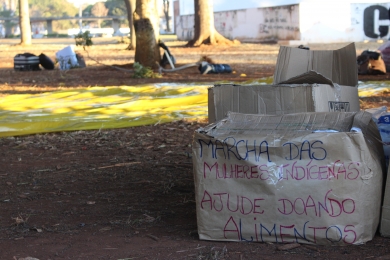 MARCHA DAS
MULHERES INDÍGENAS
AJUDE DOANDO
ALIMENTOS